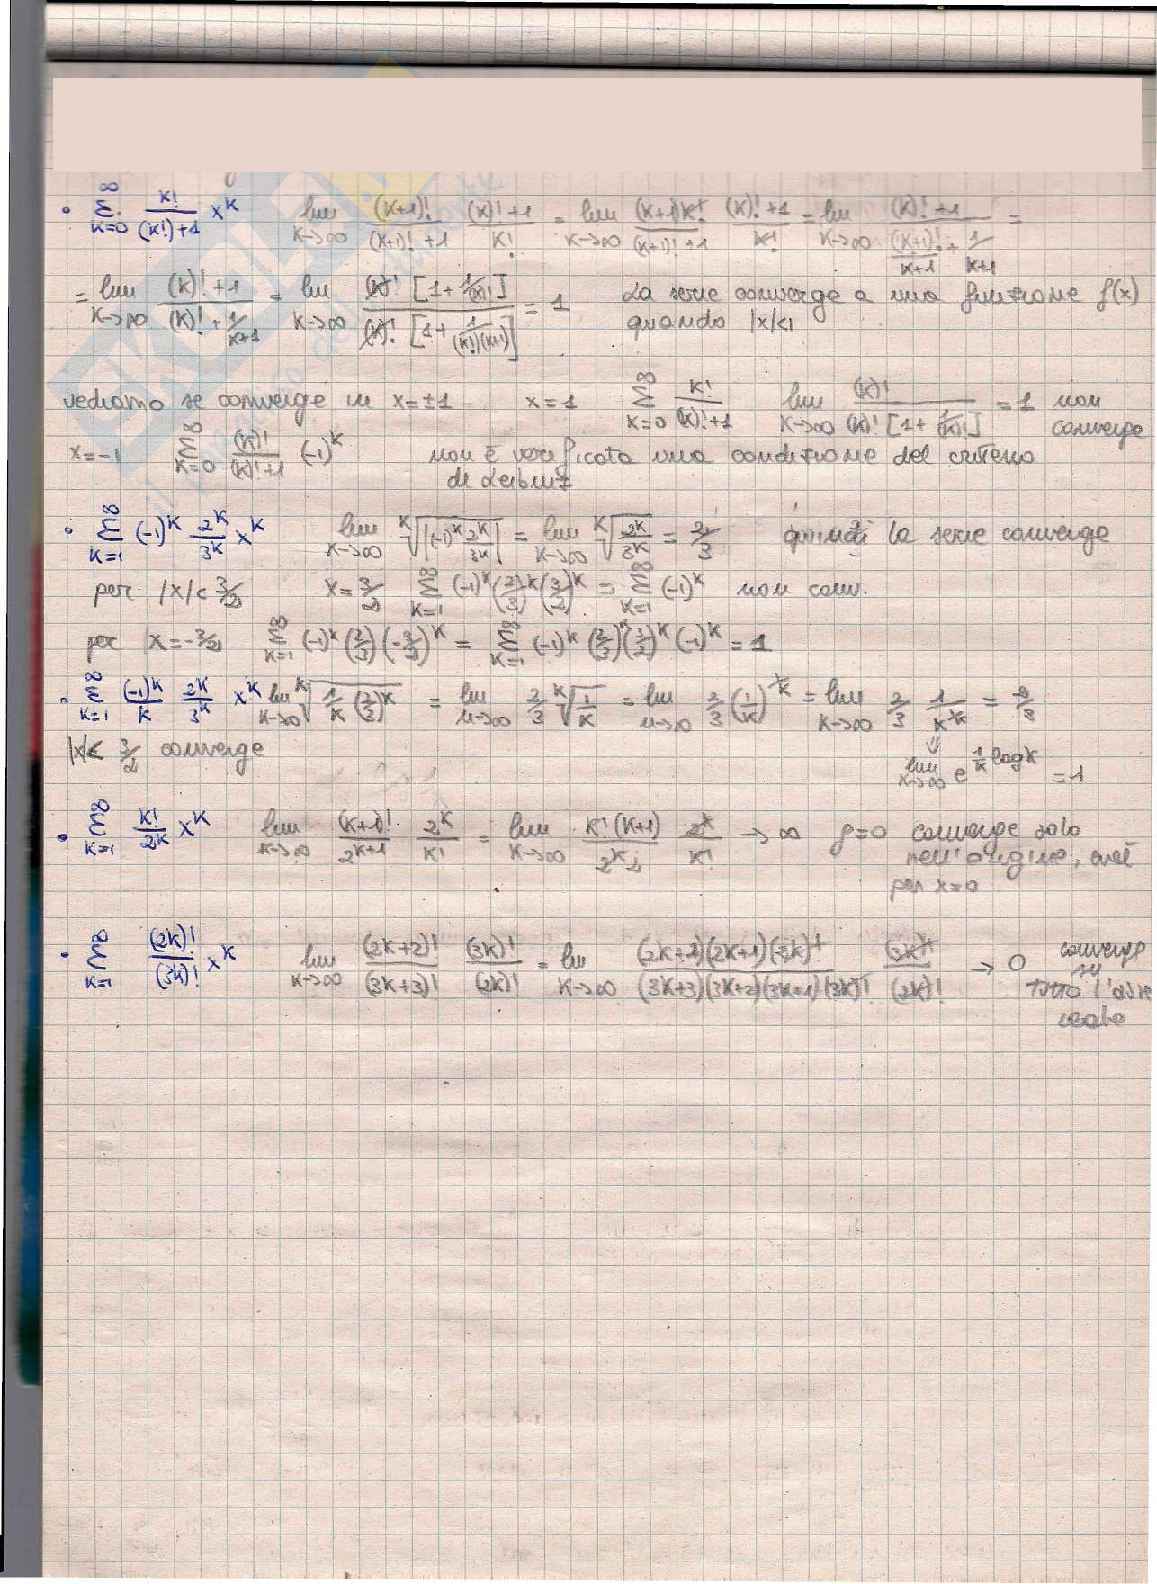 • ∑_{K=0}^{∞} K!/((K!)+1) x^K   lim_{K→∞} (K+1)!/((K+1)!+1) (K)!+1/K! = lim_{K→∞} (K+1)K!/((K+1)!+1) (K)!+1/K! = lim_{K→∞} (K)!+1/((K+1)!/(K+1) + 1/(K+1)) =
= lim_{K→∞} (K)!+1/((K)!+1/(K+1)) = lim_{K→∞} (K)! [1+1/(K)!]/((K)! [1+1/((K!)(K+1))]) = 1   La serie converge a una funzione f(x)
quando |x|<1
vediamo se converge in x=±1   x=1   ∑_{K=0}^{∞} K!/((K)!+1)   lim_{K→∞} (K)!/((K)! [1+1/(K)!]) = 1 non
converge
x=-1   ∑_{K=0}^{∞} (K)!/((K)!+1) (-1)^K   non è verificata una condizione del criterio
di Leibniz
• ∑_{K=1}^{∞} (-1)^K 2^K/3^K x^K   lim_{K→∞} ^K√|(-1)^K 2^K/3^K| = lim_{K→∞} ^K√(2^K/3^K) = 2/3   quindi la serie converge
per |x|< 3/2   x=3/2   ∑_{K=1}^{∞} (-1)^K (2/3)^K (3/2)^K = ∑_{K=1}^{∞} (-1)^K non conv.
per x=-3/2   ∑_{K=1}^{∞} (-1)^K (2/3)^K (-3/2)^K = ∑_{K=1}^{∞} (-1)^K (2/3)^K (3/2)^K (-1)^K = 1
• ∑_{K=1}^{∞} (-1)^K/K 2^K/3^K x^K   lim_{K→∞} ^K√(1/K (2/3)^K) = lim_{n→∞} 2/3 ^K√(1/K) = lim_{n→∞} 2/3 (1/K)^{1/K} = lim_{K→∞} 2/3 1/K^{1/K} = 2/3
|x|< 3/2 converge   ⇓ lim_{K→∞} e^{1/K log K} = 1
• ∑_{K=1}^{∞} K!/2^K x^K   lim_{K→∞} (K+1)!/2^{K+1} 2^K/K! = lim_{K→∞} K!(K+1)/(2^K 2) 2^K/K! → ∞   ρ=0 converge solo
nell'origine, cioè
per x=0
• ∑_{K=1}^{∞} (2K)!/(3K)! x^K   lim_{K→∞} (2K+2)!/(3K+3)! (3K)!/(2K)! = lim_{K→∞} (2K+2)(2K+1)(2K)!/((3K+3)(3K+2)(3K+1)(3K)!) (3K)!/(2K)! → 0   converge
su
tutto l'asse
reale